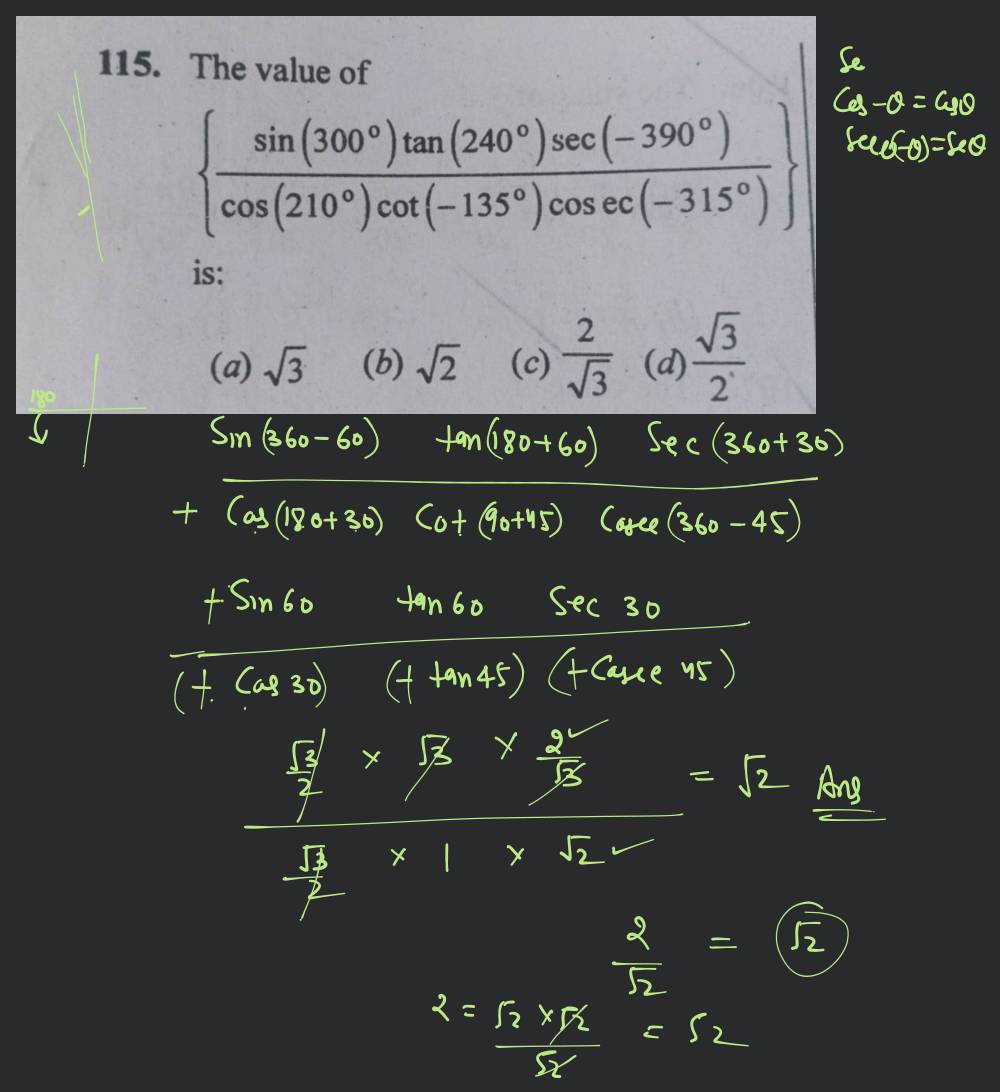 115. The value of
{ sin(300°) tan(240°) sec(−390°)
cos(210°) cot(−135°) cosec(−315°) }
is:
(a) √3 (b) √2 (c) 2/√3 (d) √3/2
Se
Cos -θ = Cosθ
Secθ(-θ) = Secθ
180
Sin (360-60) tan (180+60) Sec (360+30)
+ Cos (180+30) Cot (90+45) Cosec (360-45)
+ Sin 60 tan 60 Sec 30
(+ Cos 30) (+ tan 45) (+ Cosec 45)
√3/2 × √3 × 2/√3 = √2 Ans
√3/2 × 1 × √2
2/√2 = √2
2 = √2 × √2 / √2 = √2